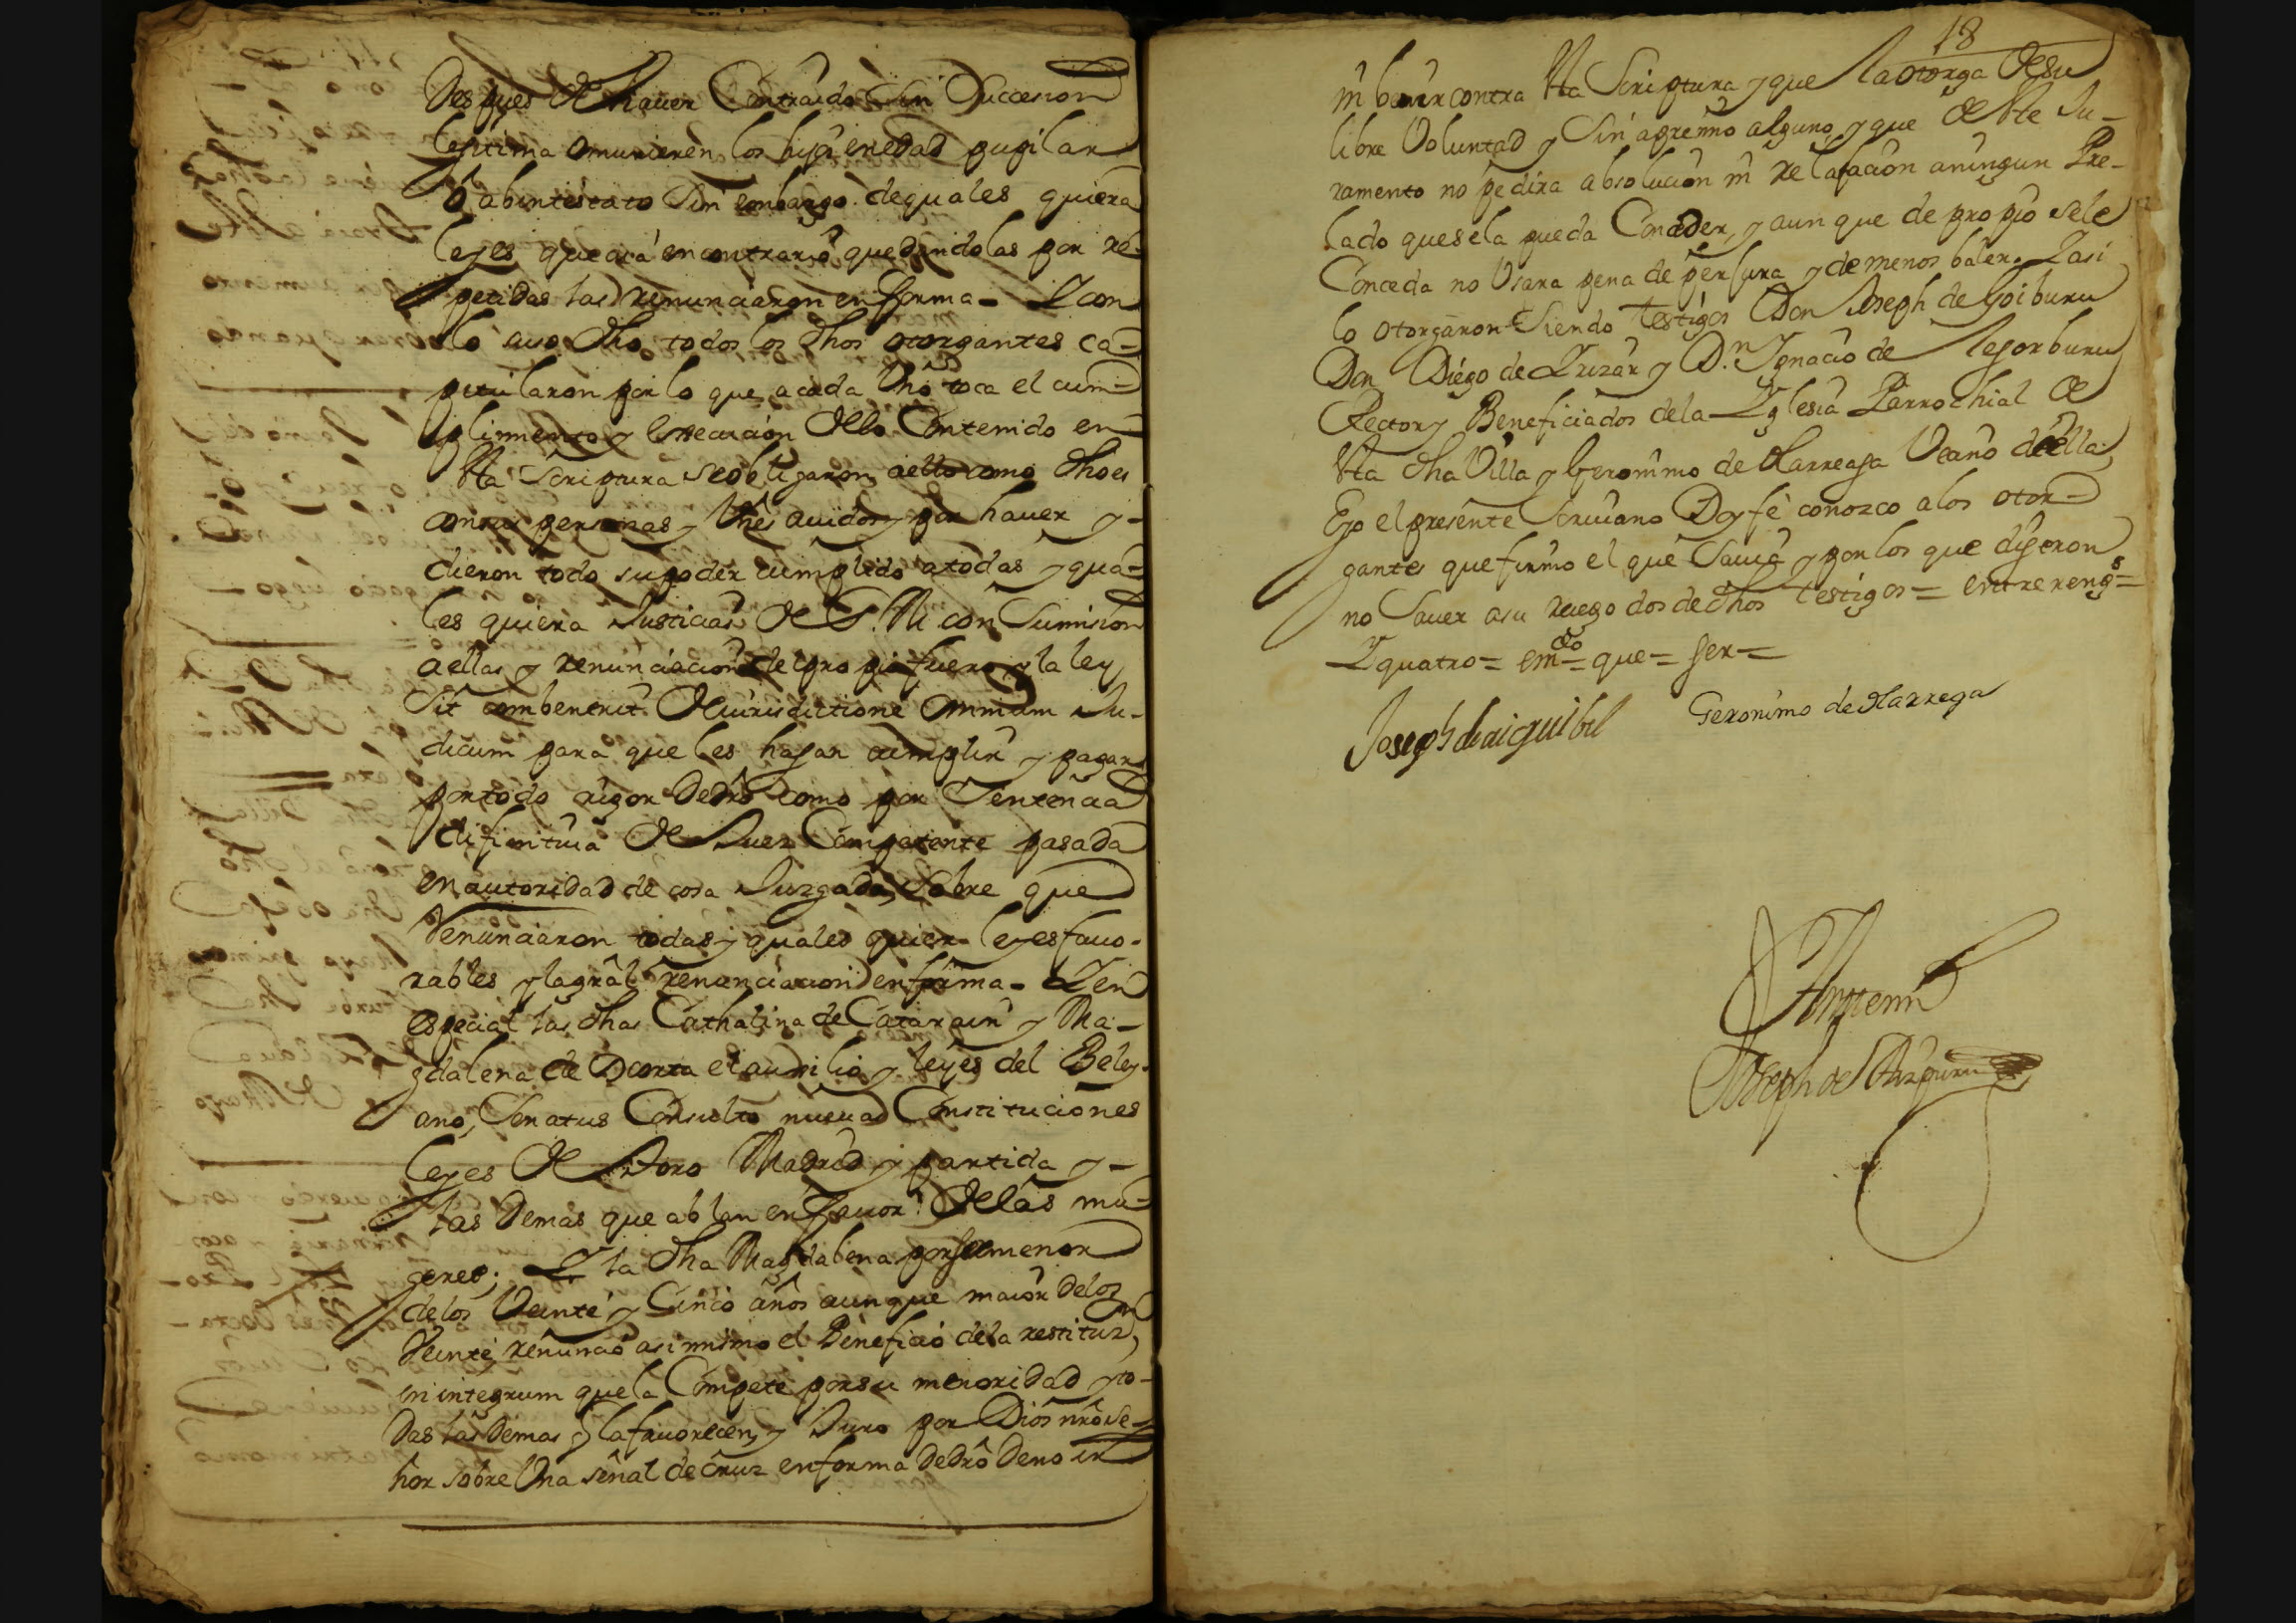 Despues de hauer Contraido Sin Succesion
lexitima o murieren los hijos en edad pupilar
o abintestato Sin embargo de quales quiera
leyes que aia en contrario que dandolas por re-
petidas las renunciaron en forma - Y con
lo auo dho todos los dhos otorgantes ca-
pitularon por lo que a cada Uno toca el cum-
plimiento y execucion de lo Contenido en
esta Scriptura se obligaron a ello como dho es
con sus personas y Vnes auidos y por hauer y -
dieron todo su poder cumplido a todas y qua-
les quiera Justicias de S. M. con Sumision
a ellas y renunciacion del propio fuero y la ley
Sit combenerit de iurisdictione Omnium Ju-
dicum para que les hagan cumplir y pagar
por todo rigor de dro como por Sentencia
difinitiua de Juez Competente pasada
en autoridad de cosa Juzgada, Sobre que
Renunciaron todas y quales quier leyes fauo-
rables y la gral renunciacion en forma - Y en
especial las dhas Cathalina de Catarain y Ma-
gdalena de el auxilio y leyes del Beley-
ano, Senatus Consulto nueuas Constituciones
leyes de Toro Madrid y partida y -
las demas que ablan en fauor de las mu-
geres; Y la dha Magdalena por ser menor
de los Veinte y Cinco años aunque maior de los
Veinte, renuncio asi mismo el Beneficio de la restituzn
in integrum que la Compete por su menoridad y to-
das las demas q la fauorecen, y Juro por Dios nro Se-
ñor sobre Una señal de Cruz en forma de dro de no ir
18
ni benir contra esta Scriptura y que la otorga de su
libre Voluntad y Sin apremio alguno, y que de este Ju-
ramento no pedira absolucion ni relaxacion a ningun Pre-
lado que se la pueda Conceder, y aun que de propio se le
Conceda no Usara pena de perjura y de menos baler. Y asi
lo otorgaron Siendo testigos Don Joseph de Goiburu
Don Diego de Yrizar y D.n Ygnacio de Legorburu
Rector y Beneficiados de la Yglesia Parrochial de
esta dha Villa y Geronimo de Larreaga Vecino de ella,
E yo el presente Scriuano Doy fe conozco a los otor-
gantes que firmo el que Sauia y por los que dijeron
no Sauer a su ruego dos de dhos testigos = entre rengs =
Y quatro = em.do = que = ser =
Joseph de aiguibel Geronimo de Larrega
Ante mi
Joseph de Aizpuru